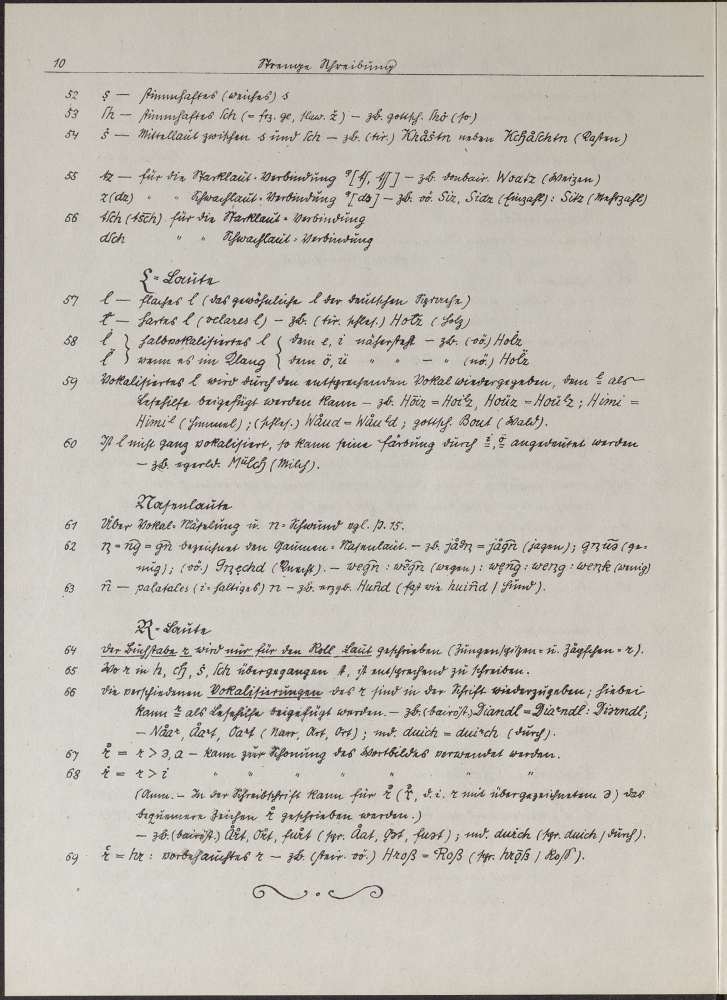 10 Strenge Schreibung
52 s̱ — stimmhaftes (weiches) s
53 ſh — stimmhaftes ſch (= frz. ge, slaw. ž) — zb. gottsch. ſho (so)
54 ṡ — Mittellaut zwischen s und ſch — zb. (tir.) Khåṡtn neben Kchåſchtn (Kasten)
55 tz — für die Starklaut-Verbindung — zb. donbair. Woatz (Weizen)
z (dz) " " Schwachlaut-Verbindung — zb. oö. Siz, Sidz (Einzahl): Sitz (Mehrzahl)
56 tſch (tſch) für die Starklaut-Verbindung
dſch " " Schwachlaut-Verbindung
L-Laute
57 l — flaches l (das gewöhnliche l der deutschen Sprache)
ł — hartes l (velares l) — zb. (tir. schles.) Hołz (Holz)
58 l̇ } halbvokalisiertes l { dem e, i nähersteht — zb. (oö.) Hol̇z
l̈ } wenn es im Klang { dem ö, ü " " — " (nö.) Hol̈z
59 Vokalisiertes l wird durch den entsprechenden Vokal wiedergegeben, dem l als
Lesehilfe beigefügt werden kann — zb. Hoiz = Hoiˡz, Houz = Houˡz; Himi =
Himiˡ (Himmel); (schles.) Wåud = Wåuˡd; gottsch. Bout (Wald).
60 Ist l nicht ganz vokalisiert, so kann seine Färbung durch angedeutet werden
— zb. egerld. Mᵘlch (Milch).
Nasenlaute
61 Über Vokal-Näselung u. n-Schwund vgl. S. 15.
62 ŋ = n͞g = g͞n bezeichnet den Gaumen-Nasenlaut. — zb. jådŋ = jågn̄ (jagen); gŋua (ge-
nug); (oö.) Gŋechd (Knecht). — wegn̄ : wēgn̄ (wegen) : weng : weŋg : wenk (wenig)
63 ñ — palatales (i-haltiges) n — zb. erzgb. Huñd (fast wie huiñd / Hund).
R-Laute
64 Der Buchstabe r wird nur für den Roll-Laut geschrieben (Zungenspitzen- u. Zäpfchen-r).
65 Wo r in h, ch, ṡ, ſch übergegangen ist, ist entsprechend zu schreiben.
66 Die verschiedenen Vokalisierungen des r sind in der Schrift wiederzugeben; hiebei
kann r als Lesehilfe beigefügt werden. — zb. (bairöst.) Diandl = Diaʳndl : Diarndl;
— Nåaʳ, Åaʳt, Oaʳt (Narr, Art, Ort); md. duich = duiʳch (durch).
67 r̊ = r > ə, a — kann zur Schonung des Wortbildes verwendet werden.
68 ṙ = r > i " " " " " " "
(Anm. — In der Schreibschrift kann für r̊ (d.i. r mit übergezeichnetem ə) das
bequemere Zeichen r̊ geschrieben werden.)
— zb. (bairöst.) År̊t, Or̊t, fur̊t (spr. Åat, Oət, fuət); md. duṙch (spr. duich / durch).
69 = hr : vorbehauchtes r — zb. (steir. oö.) Hroß = Roß (spr. / Roß).